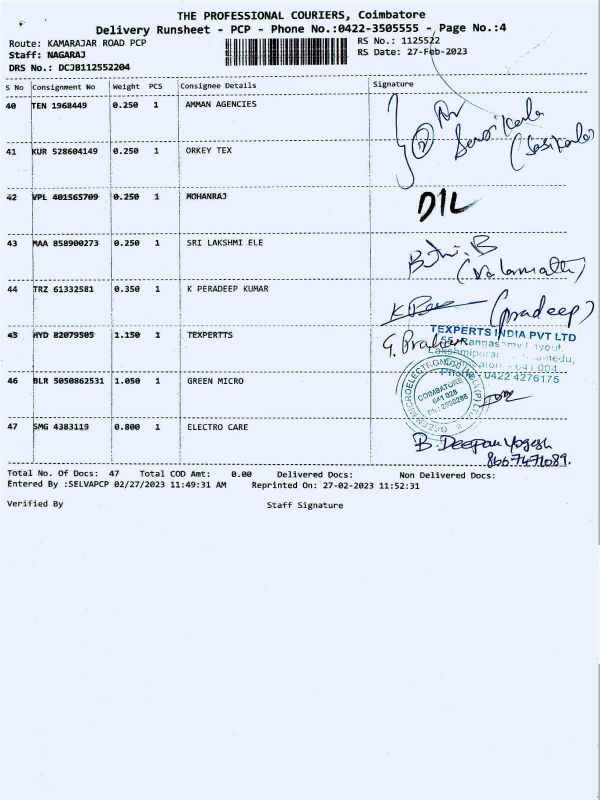 THE PROFESSIONAL COURIERS, Coimbatore
Delivery Runsheet - PCP - Phone No.:0422-3505555 - Page No.:4
Route: KAMARAJAR ROAD PCP
RS No.: 1125522
Staff: NAGARAJ
RS Date: 27-Feb-2023
DRS No.: DCJB112552204
S No Consignment No Weight PCS Consignee Details Signature
40 TEN 1968449 0.250 1 AMMAN AGENCIES
41 KUR 528604149 0.250 1 ORKEY TEX
(Sasikala)
42 VPL 401565709 0.250 1 MOHANRAJ
43 MAA 858900273 0.250 1 SRI LAKSHMI ELE
(Valarmathi)
44 TRZ 61332581 0.350 1 K PERADEEP KUMAR
(pradeep)
45 HYD 82079505 1.150 1 TEXPERTTS
TEXPERTS INDIA PVT LTD
Lakshmipuram
641 004
Phone: 0422 4276175
46 BLR 5050862531 1.050 1 GREEN MICRO
COIMBATORE
641 028
47 SMG 4383119 0.800 1 ELECTRO CARE
B. Deepan Yogesh
8667471089.
Total No. Of Docs: 47 Total COD Amt: 0.00 Delivered Docs: Non Delivered Docs:
Entered By :SELVAPCP 02/27/2023 11:49:31 AM Reprinted On: 27-02-2023 11:52:31
Verified By Staff Signature